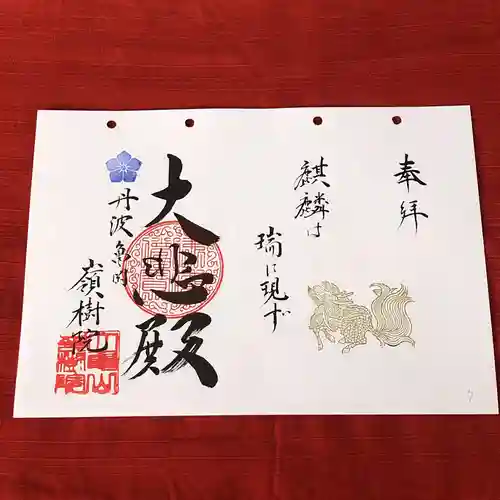 奉拝
麒麟は
瑞に現ず
大悲殿
丹波亀岡
嶺樹院